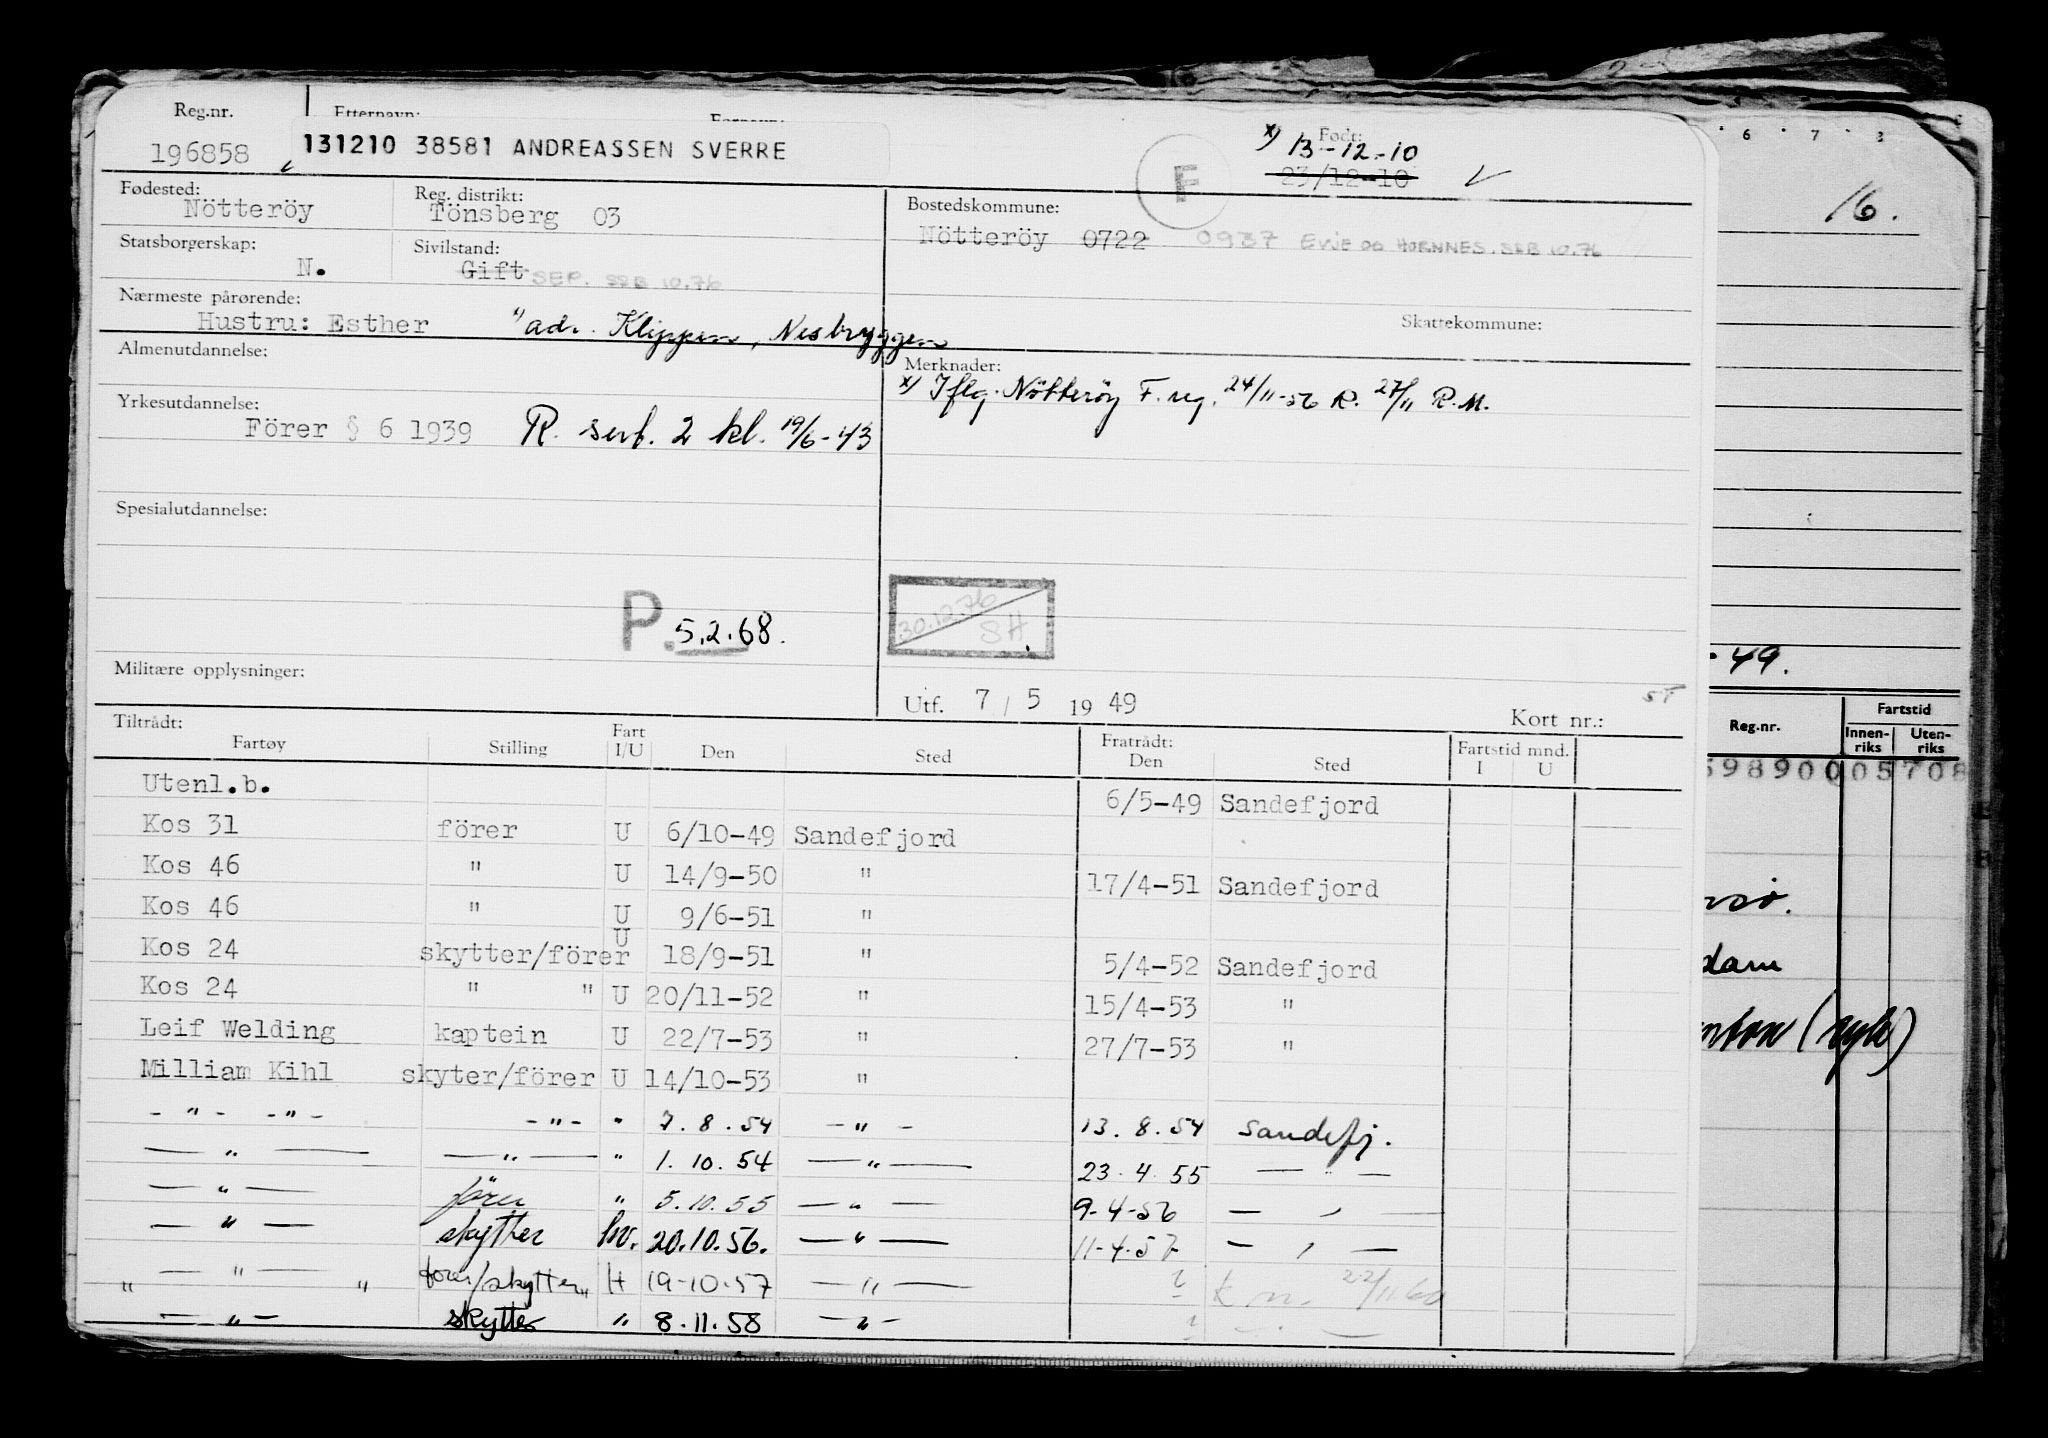 Reg.nr. Etternavn: Fornavn: Født:
196858 131210 38581 ANDREASSEN SVERRE F x) 13-12-10
23/12-10
Fødested: Nötteröy Reg. distrikt: Tönsberg 03 Bostedskommune:
Nötteröy 0722 0937 EVJE OG HORNNES. SSB 10.76
Statsborgerskap: N. Sivilstand: Gift SEP. SSB 10.76
Nærmeste pårørende:
Hustru: Esther " adr. Klippen, Nesbryggen Skattekommune:
Almenutdannelse: Merknader:
x) Iflg. Nötteröy F. reg. 24/11-56 R. 27/11 R.M.
Yrkesutdannelse:
Förer § 6 1939 R. serf. 2 kl. 19/6-43
Spesialutdannelse:
P. 5.2.68. 30.12.76 SH
Militære opplysninger:
Utf. 7 / 5 19 49 Kort nr.: ST
Tiltrådt: Fratrådt:
Fartøy Stilling Fart I/U Den Sted Den Sted Fartstid mnd. I U
Utenl.b. 6/5-49 Sandefjord
Kos 31 förer U 6/10-49 Sandefjord
Kos 46 " U 14/9-50 " 17/4-51 Sandefjord
Kos 46 " U 9/6-51 "
Kos 24 skytter/förer U 18/9-51 " 5/4-52 Sandefjord
Kos 24 " " U 20/11-52 " 15/4-53 "
Leif Welding kaptein U 22/7-53 " 27/7-53 "
Milliam Kihl skyter/förer U 14/10-53 "
- " - - " - - " - " 7.8.54 - " - 13.8.54 Sandefj.
- " - - " - " 1.10.54 - " - 23.4.55 - " -
- " - fører " 5.10.55 - " - 9-4-56 - " -
- " - skytter hv. 20.10.56. - " - 11-4-57 - " -
" - " - " fører/skytter H 19-10-57 - " - ? 22/11 60
- " - skytter " 8.11.58 - " - ?
6 7 8
16.
-49.
Reg.nr. Fartstid
Innenriks Utenriks
598900 05708
dam
(syk)